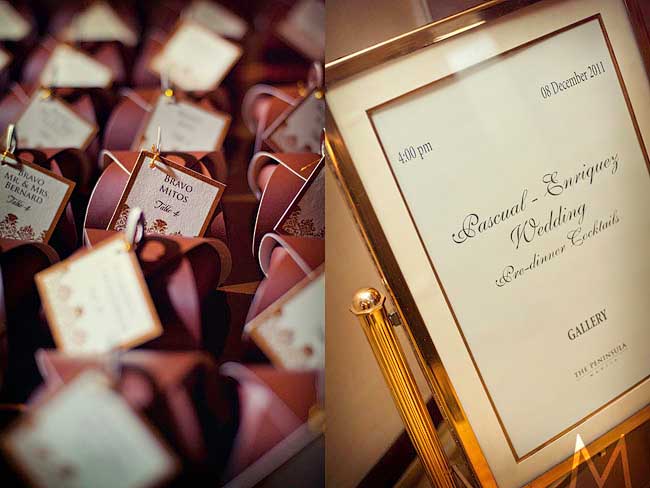 BRAVO
MR. & MRS.
BERNARD
Table 4
BRAVO
MITOS
Table 4
08 December 2011
4:00 pm
Pascual - Enriquez
Wedding
Pre-dinner Cocktails
GALLERY
THE PENINSULA
MANILA
M